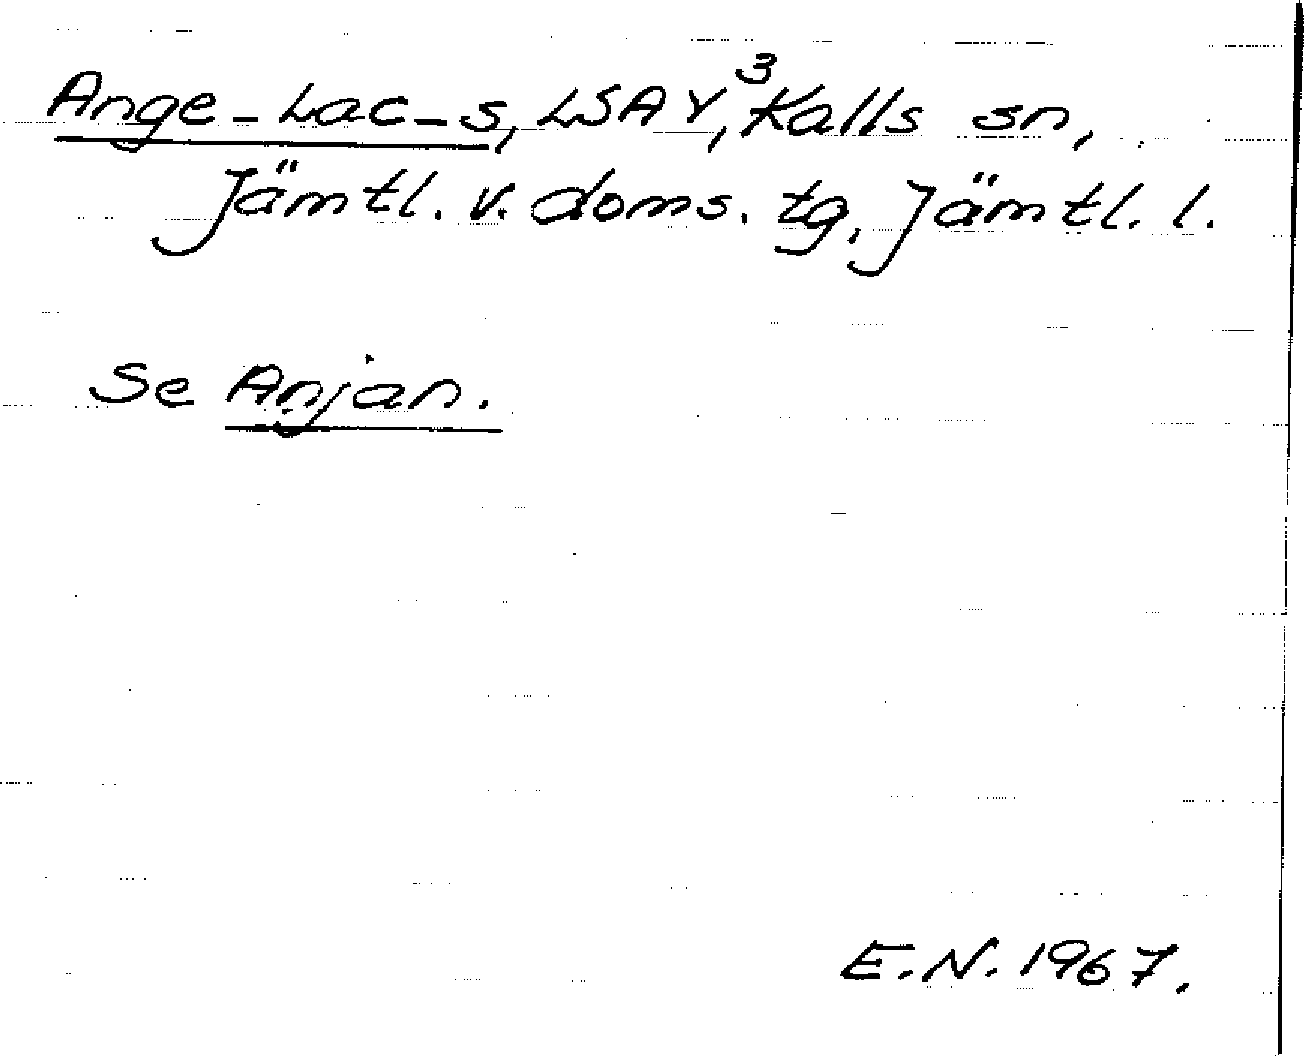 Ange-Lac-s, LSA Y,³ Kalls sn,
Jämtl. v. doms. tg, Jämtl. l.
Se Anjan.
E.N. 1967.